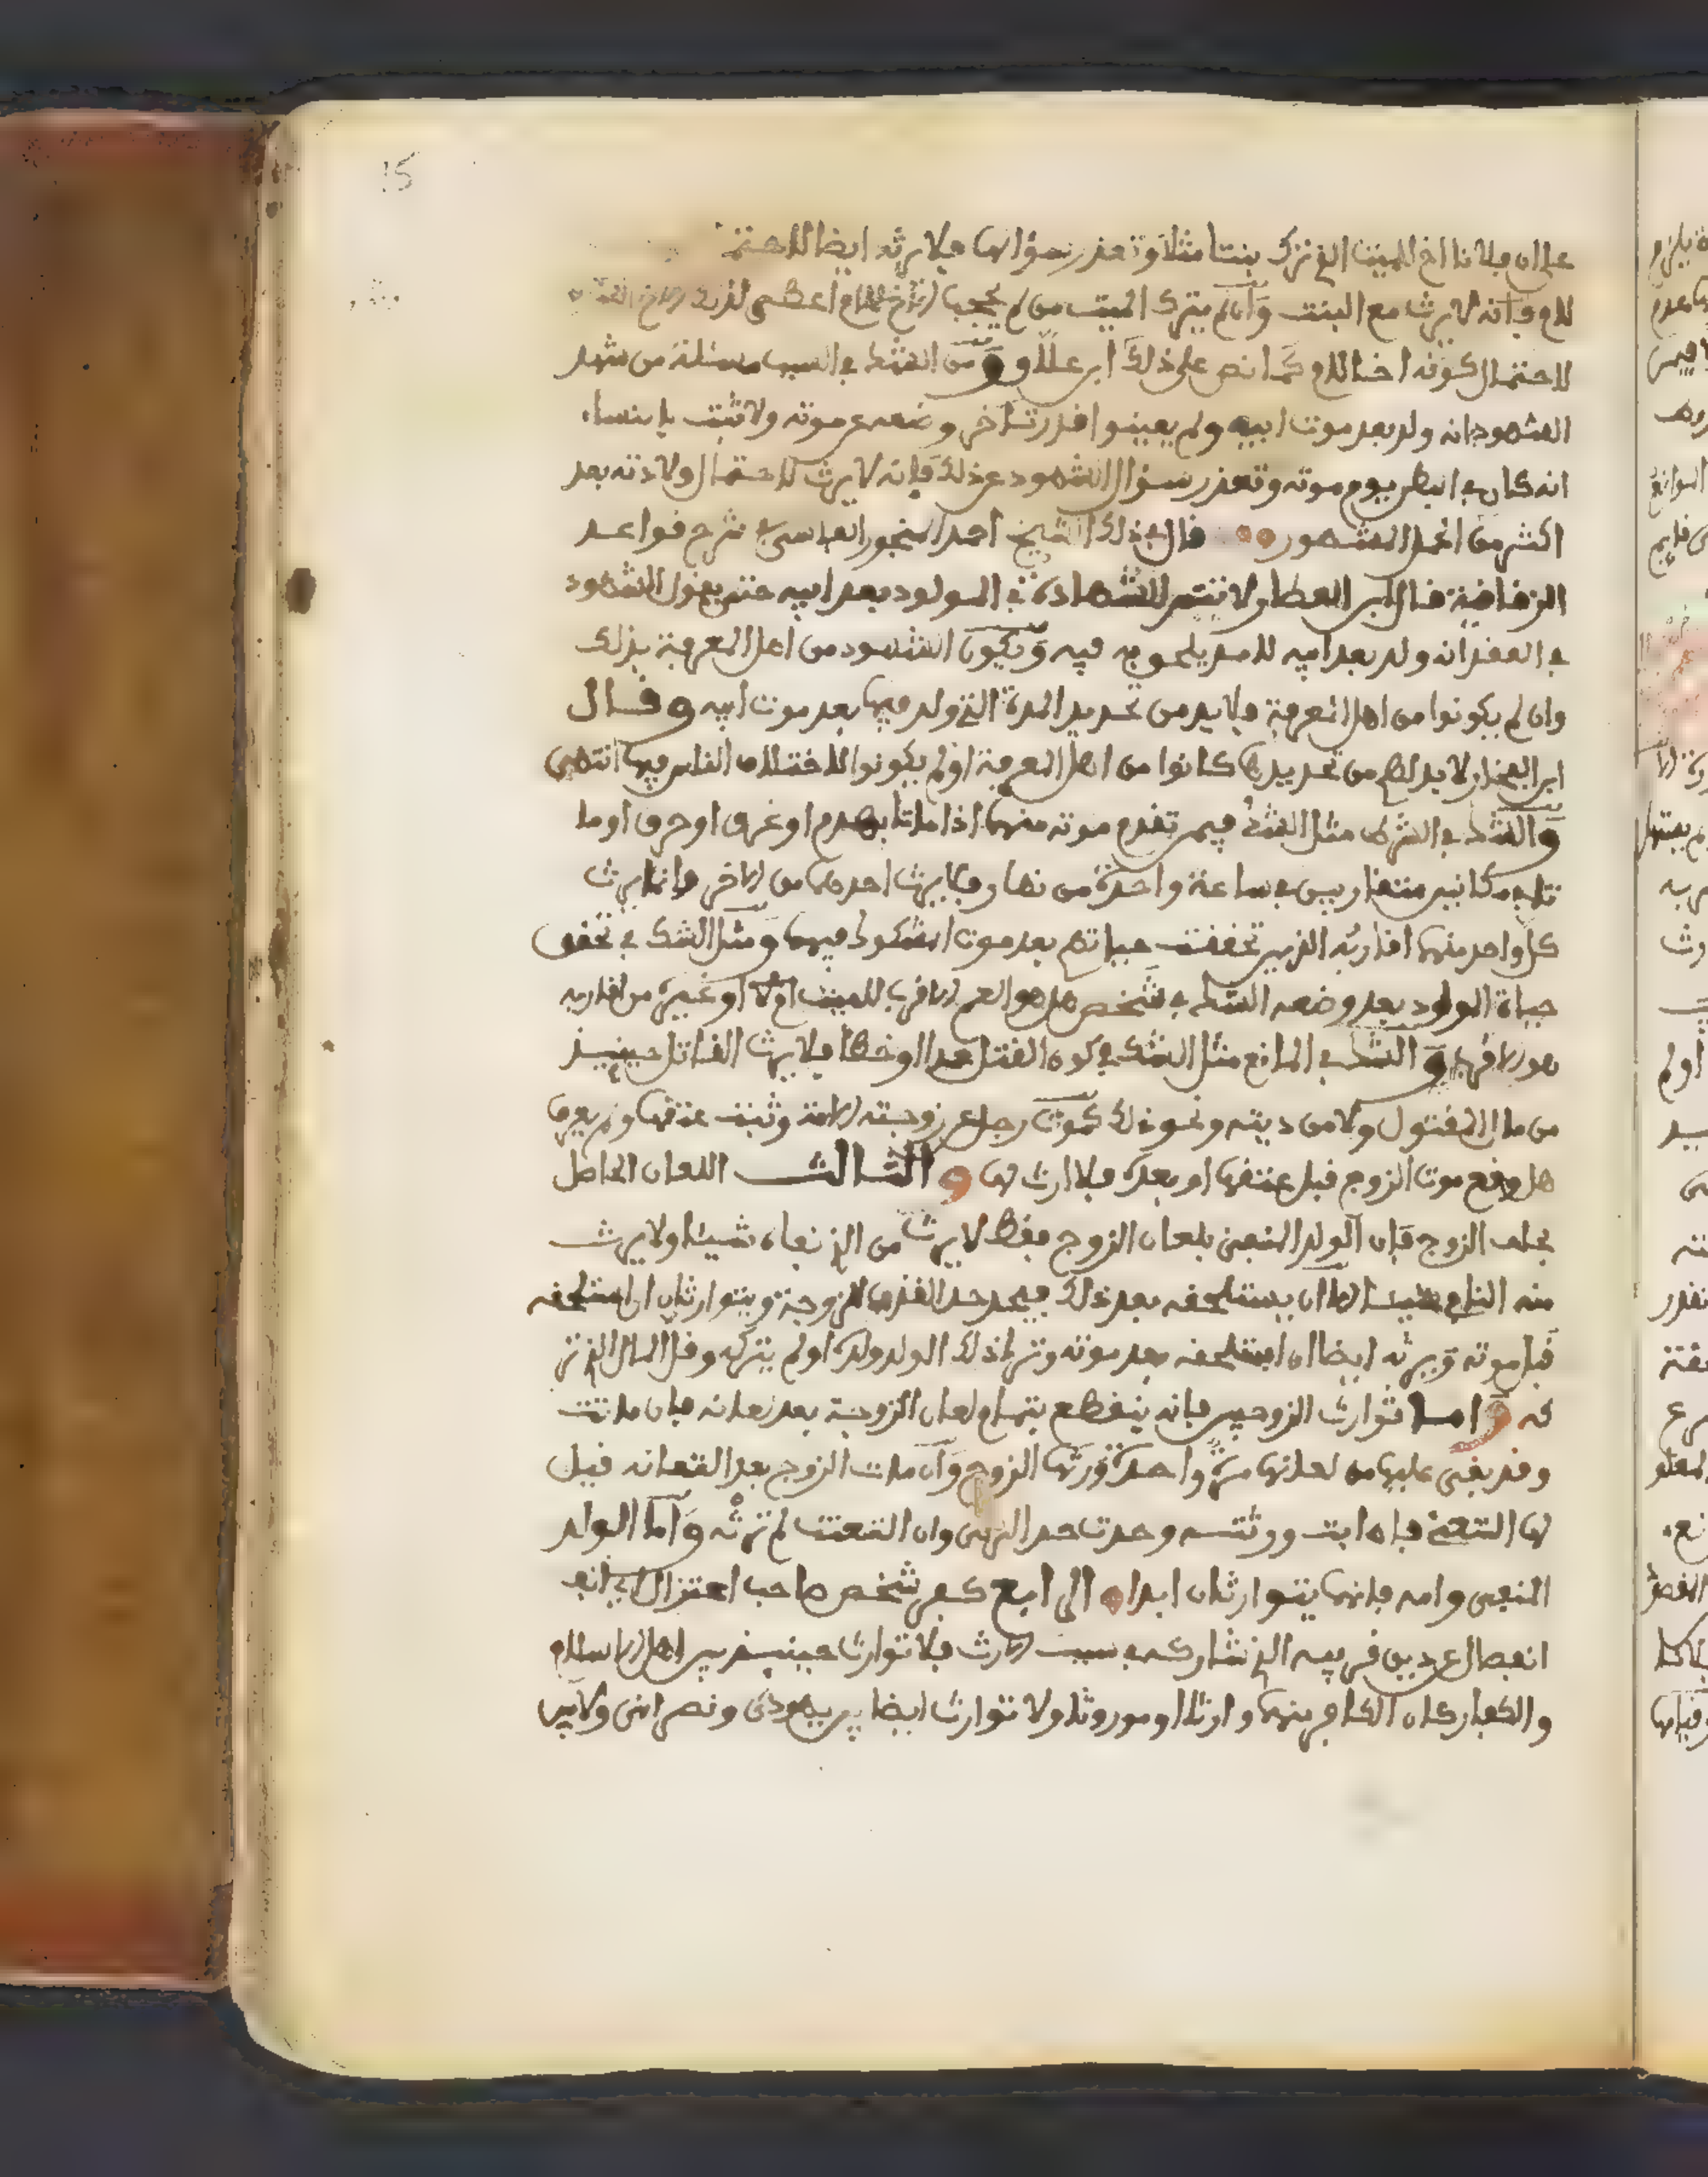 15
على ان فلانا اخ الميت الذي ترك بنتا مثلا وتعذر سؤالها فلا يرثه ايضا لاحتما
للام فانه لا يرث مع البنت وان لم يترك الميت من لم يحجب الاخ للام اعطى لذلك الاخ
لاحتمال كونه اخا للام كما نص على ذلك ابن علاو ومن الشك في السبب مسئلة من شهد
الشهود بانه ولد بعد موت ابيه ولم يعينوا قدر تاخر وضعه عن موته ولا ثبت بالنساء
انه كان في البطن يوم موته وتعذر سؤال الشهود عن ذلك فانه لا يرث لاحتمال ولادته بعد
اكثر من اجل المشهور قال في ذلك الشيخ احمد المنجور الفاسي في شرح قواعد
الزقاقية قال ابن العطار ولا تتم الشهادة في المولود بعد ابيه حتى يقول الشهود
في العقد انه ولد بعد ابيه لامد يلحق به فيه ويكون الشهود من اهل المعرفة بذلك
وان لم يكونوا من اهل المعرفة فلا بد من تحديد المدة التي ولد فيها بعد موت ابيه وقال
ابن الفخار لا بد لهم من تحديدها كانوا من اهل المعرفة او لم يكونوا لاختلاف الناس فيها انتهى
والشك في الشرط مثل الشك فيمن تقدم موته منهما اذا ماتا بهدم او غرق او حرق او ما
تا في مكانين متقاربين في ساعة واحدة من نهار فلا يرث احدهما من الاخر وانما يرث
كل واحد منهما اقاربه الذين تحققت حياتهم بعد موت المشكوك فيهما ومثل الشك في تحقق
حياة المولود بعد وضعه الشك في شخص هل هو العم الاقرب للميت اولا او غيره من اقاربه
هو الاقرب والشك في المانع مثل الشك في كون القتل عمدا او خطا فلا يرث القاتل حينئيذ
من مال المقتول ولا من ديته ونحو ذلك كموت رجل عن زوجته الامة وثبت عتقها ولم يعرف
هل وقع موت الزوج قبل عتقها او بعده فلا ارث لها و الثالث اللعان الحاصل
بحلف الزوج فان الولد المنفي بلعان الزوج فقط لا يرث من الذي نفاه شيئا ولا يرث
منه النافي شيئا الا ان يستلحقه بعد ذلك فيحد حد القذف للزوجة ويتوارثان ان استلحقه
قبل موته ويرثه ايضا ان استلحقه بعد موته وترك ذلك الولد ولدا او لم يتركه وقل المال الذي تر
كه واما توارث الزوجين فانه ينقطع بتمام لعان الزوجة بعد لعانه فان ماتت
وقد بقي عليها من لعانها مرة واحدة ورثها الزوج وان مات الزوج بعد التعانه قيل
لها التعني فان ابت ورثته وحدت حد الزنى وان التعنت لم ترثه واما الولد
المنفي وامه فانهما يتوارثان ابدا الرابع كفر شخص صاحب اعتزال اي انفـ
انفصال عن دين قريبه الذي شاركه في سبب الارث فلا توارث حينئيذ بين اهل الاسلام
والكفار كان الكافر منهما وارثا او موروثا ولا توارث ايضا بين يهودي ونصراني ولا بين